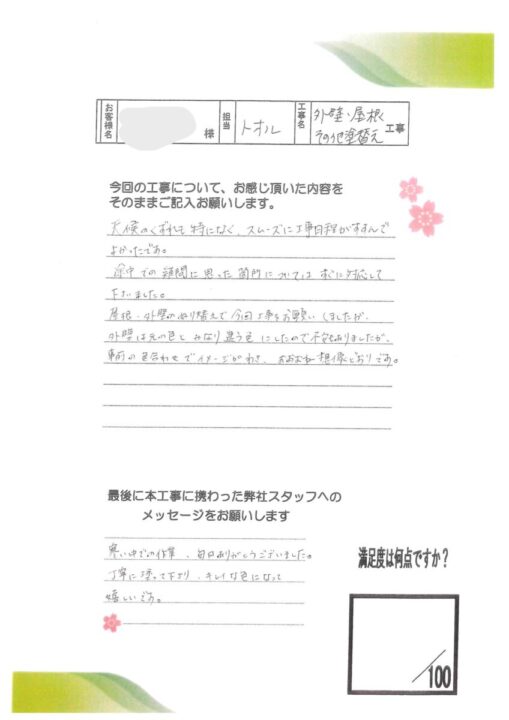 お客様名 様 担当 トオル 工事名 外壁・屋根 その他塗替え 工事
今回の工事について、お感じ頂いた内容を
そのままご記入お願いします。
天候のくずれも特になく、スムーズに工事日程がすすんで
よかったです。
途中での疑問に思った箇所についてはすぐに対応して
下さいました。
屋根・外壁のぬり替えで今回工事をお願いしましたが、
外壁は元の色とかなり違う色にしたので不安もありましたが、
事前の色合わせでイメージがわき、おおむね想像どおりです。
最後に本工事に携わった弊社スタッフへの
メッセージをお願いします
寒い中での作業、毎日ありがとうございました。
丁寧に塗って下さり、キレイな色になって
嬉しいです。
満足度は何点ですか？
/100